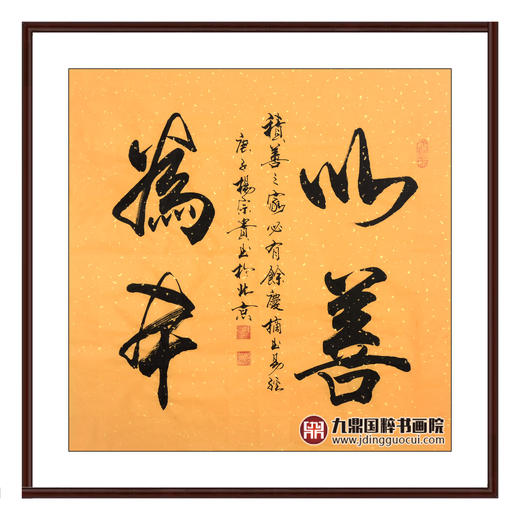 以善
為本
積善之家必有餘慶摘書易經
庚子楊宗貴書於北京
九鼎国粹书画院
www.jdingguocui.com